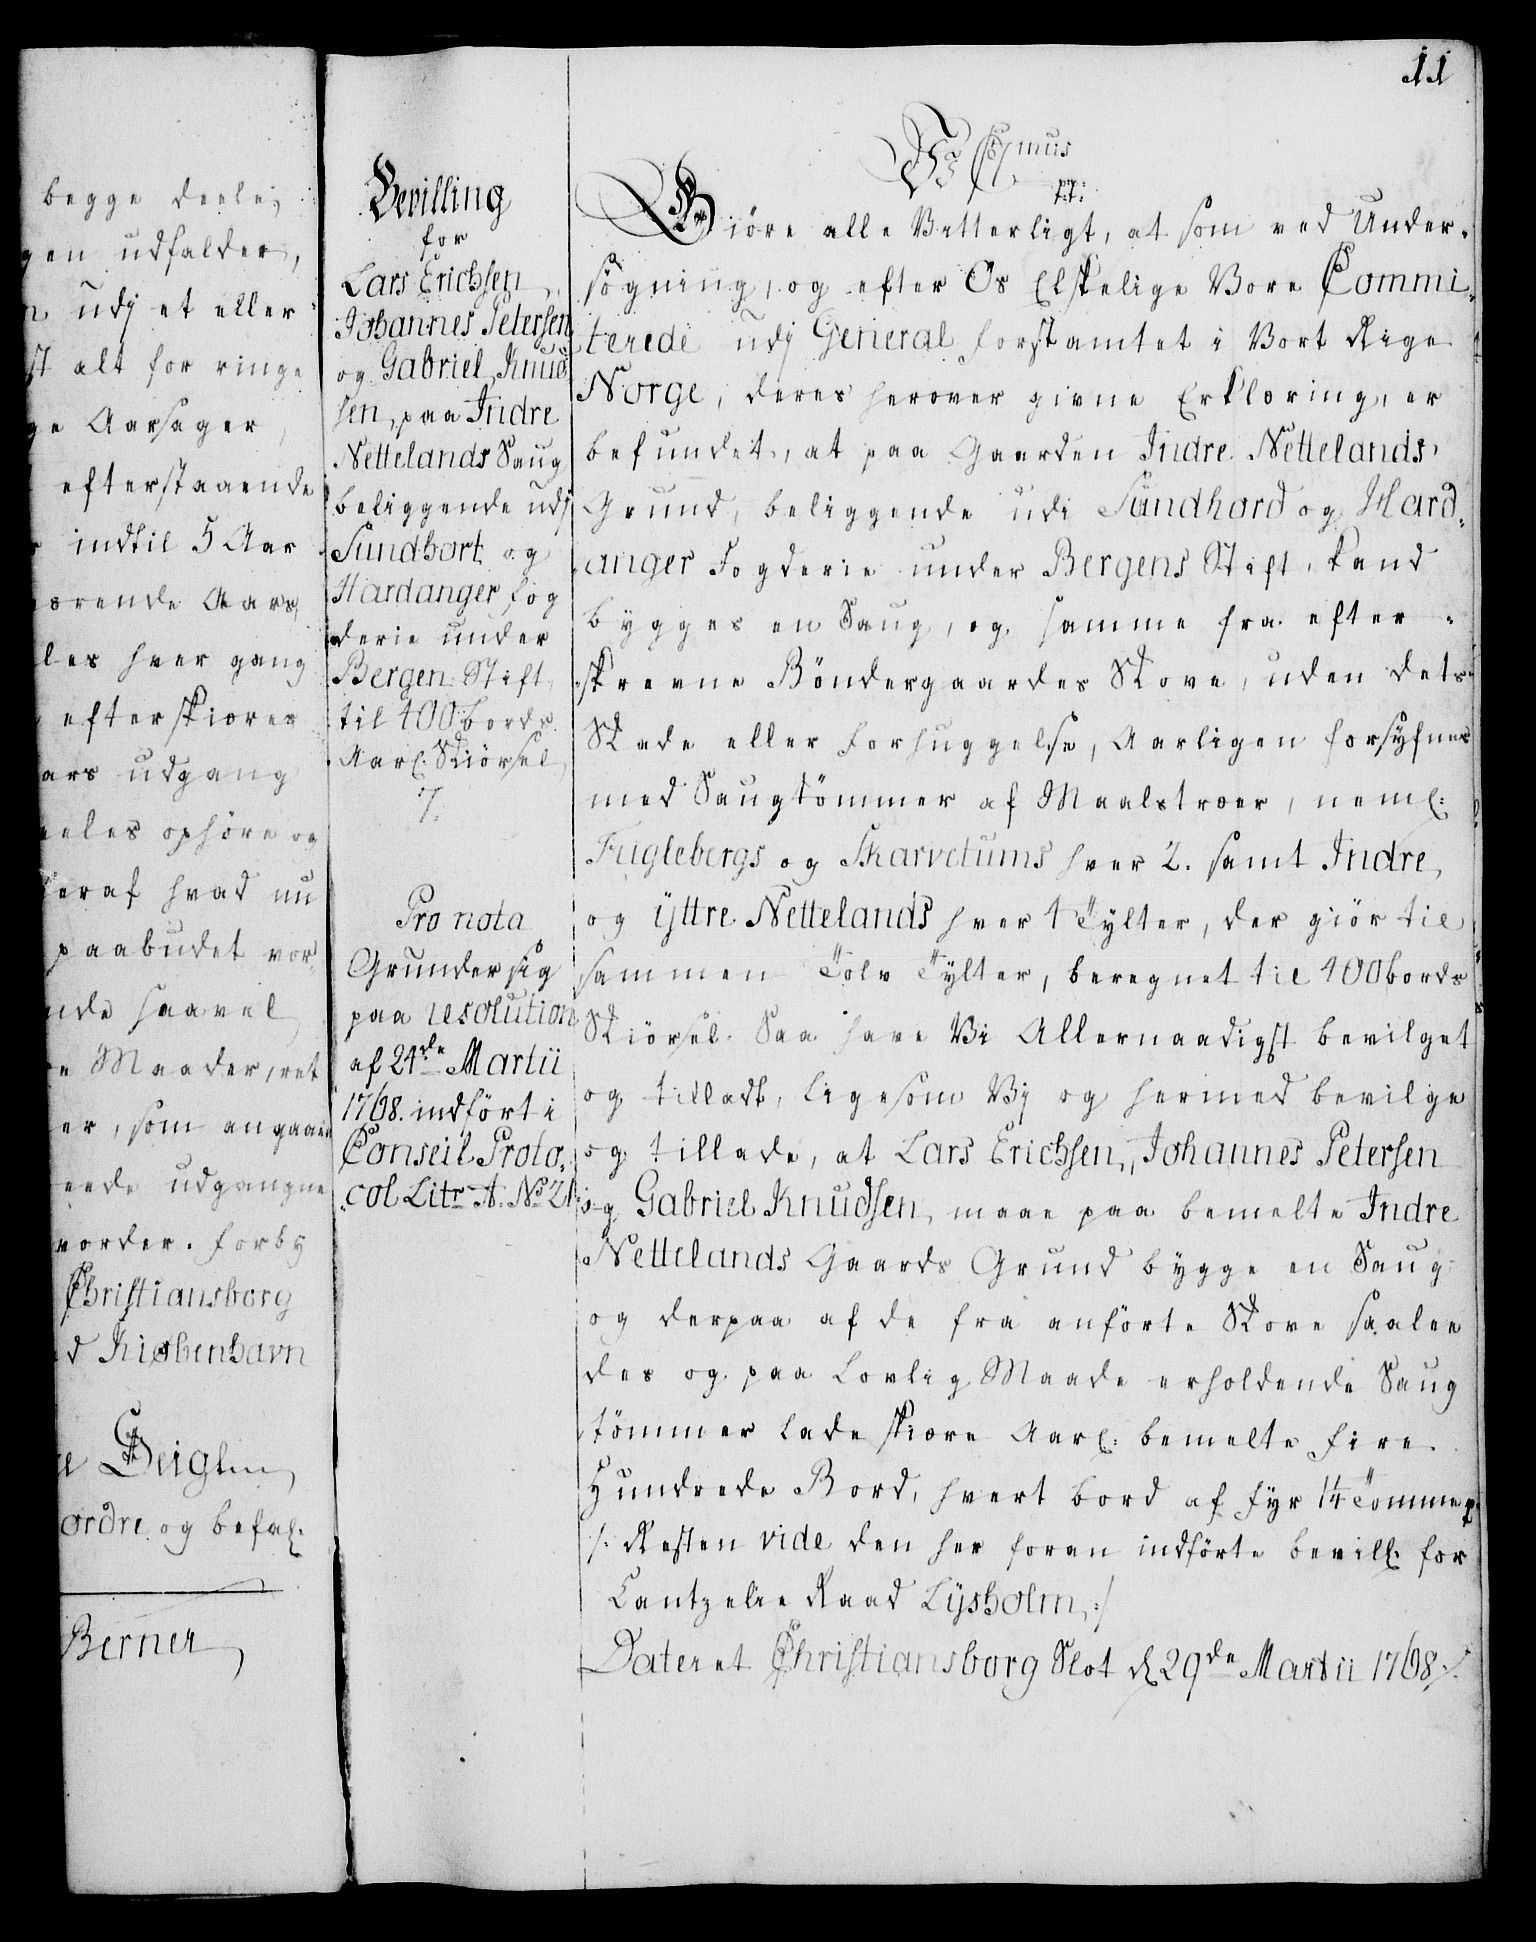 11
begge deele,
gen udfalder,
n udj et eller
st alt for ringe
ge Aarsager,
efterstaaende
indtil 5 Aar
ørende Aars,
les hver gang
efterskiæres
ars udgang
eeles ophøre og
heraf hvad nu
paabudet vor,
nde saavel
e Maader, ret
er, som angaaen
eede udgangne
vorder. forby
Christiansborg
d Kiøbenhavn
Geiglin
ordre og befal.
Berner
Bevilling
for
Lars Erichsen,
Johannes Petersen
og Gabriel Knud
sen, paa Indre
Nettelands Saug
beliggende udj
Sundhort og
Hardanger fog
derie under
Bergen Stift,
til 400 bords
Aarl. Skiörsel
7.
Pro nota
Grunder sig
paa resolution
af 24de Martii
1768. indført i
Conseil Proto,
col Litr A. No 21
Vi C 7mus
pp:
Giöre alle Vitterligt, at som ved Under,
sögning, og efter Os Elskelige Vore Commi,
terede udj General Forstamtet i Vort Rige
Norge, deres herover givne Erklæring, er
befundet, at paa Gaarden Indre Nettelands
Grund, beliggende udi Sundhord og Hard,
anger Fogderie under Bergens Stift, kand
bygges en Saug, og samme fra efter,
skrevne Böndergaardes Skove, uden dets
Skade eller Forhuggelse, Aarligen forsyfnes
med Saugtömmer af Maalstræer, neml:
Fuglebergs og Skarvetums hver 2. samt Indre,
og ÿttre Nettelands hver 4 Tylter, der giör til
sammen Tolv Tylter, beregnet til 400 bords
Skiörsel. Saa have Vi Allernaadigst bevilget
og tilladt, ligesom Vij og hermed bevilge
og tillade, at Lars Erichsen, Johannes Petersen
og Gabriel Knudsen, maae paa bemelte Indre
Nettelands Gaards Grund bygge en Saug
og derpaa af de fra anförte Skove saalee
des og paa Lovlig Maade erholdende Saug
tömmer lade skiære Aarl: bemelte fire
Hundrede Bord, hvert bord af fyr 14 Tommer
/: Resten vide den her foran indförte bevill. for
Cantzelie Raad Lÿsholm :/
Dateret Christiansborg Slot d 29de Martii 1768 /.